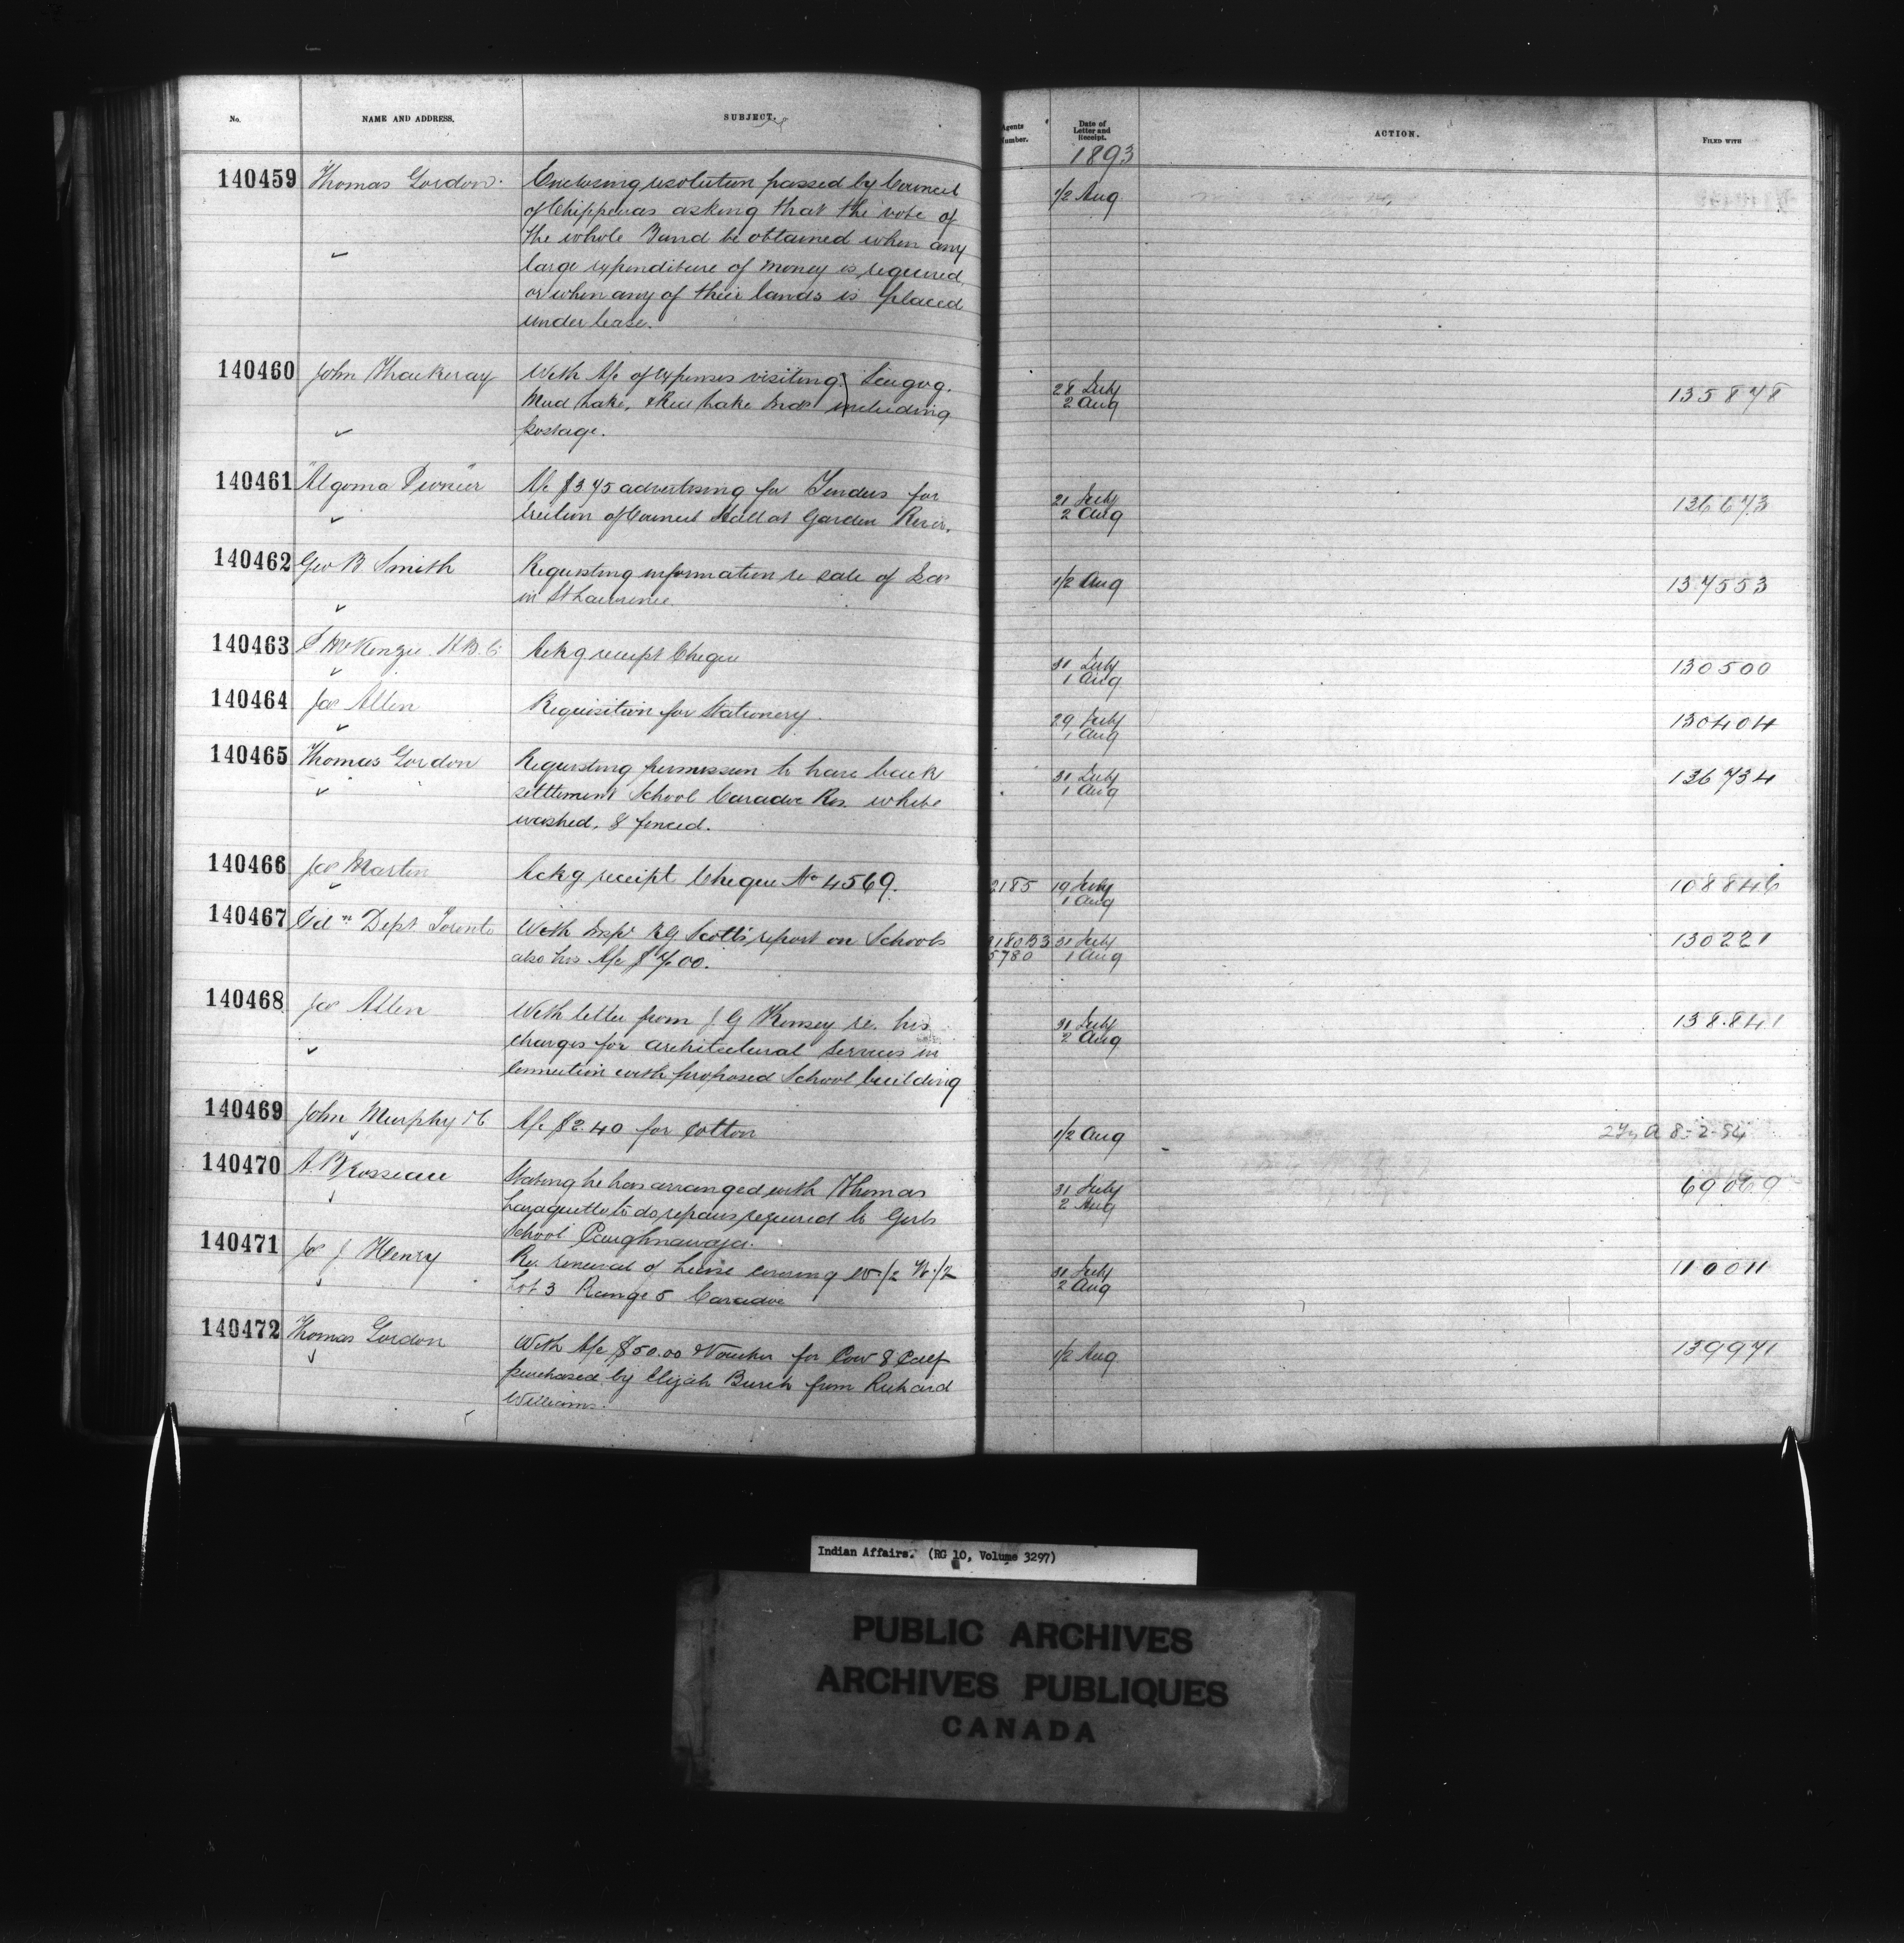 No.
NAME AND ADDRESS.
SUBJECT.
Agents Number.
Date of Letter and Receipt.
ACTION.
FILED WITH
1893
140459 Thomas Gordon. Enclosing resolution passed by Council 1/2 Aug
of Chippewas asking that the vote of
the whole Band be obtained when any
large expenditure of money is required
or when any of their lands is placed
under lease.
140460 John Thackeray With A/c of expenses visiting Scugog. 28 July 135878
Mud Lake, & Rice Lake Inds including 2 Aug
postage.
140461 "Algoma Pioneer" A/c $3 75 advertising for Tenders for 21 July 136673
erection of Council Hall at Garden River. 2 Aug
140462 Geo B Smith Requesting information re sale of Isds 1/2 Aug 137553
in St Lawrence.
140463 McKenzie H.B.C. Ackg receipt Cheque 31 July 130500
1 Aug
140464 Jas Allen Requisition for Stationery. 29 July 130404
1 Aug
140465 Thomas Gordon Requesting permission to have back 31 July 136734
settlement School Caradoc Res. white 1 Aug
washed, & fenced.
140466 Jas Martin Ackg receipt Cheque No 4569. 2185 19 July 108846
1 Aug
140467 Edn Dept Toronto With Inspr R G Scott's report on Schools 31 July 130221
also his A/c $7.00. 5780 1 Aug
140468 Jas Allen With letter from J G Kinsey re. his 31 July 138.841
charges for architectural services in 2 Aug
connection with proposed School building
140469 John Murphy & C A/c $2.40 for Cotton 1/2 Aug 8-2-94
140470 A. Brosseau Stating he has arranged with Thomas 31 July 69069
to do repairs required to Girls 2 Aug
School Caughnawaga.
140471 Jas J Henry Re. renewal of Lease covering 1/2 1/2 31 July 110011
Lot 3 Range 5 Caradoc 2 Aug
140472 Thomas Gordon With A/c $50.00 & Voucher for Cow & Calf 1/2 Aug 139971
purchased by Elijah Burch from Richard
Williams.
Indian Affairs. (RG 10, Volume 3297)
PUBLIC ARCHIVES
ARCHIVES PUBLIQUES
CANADA